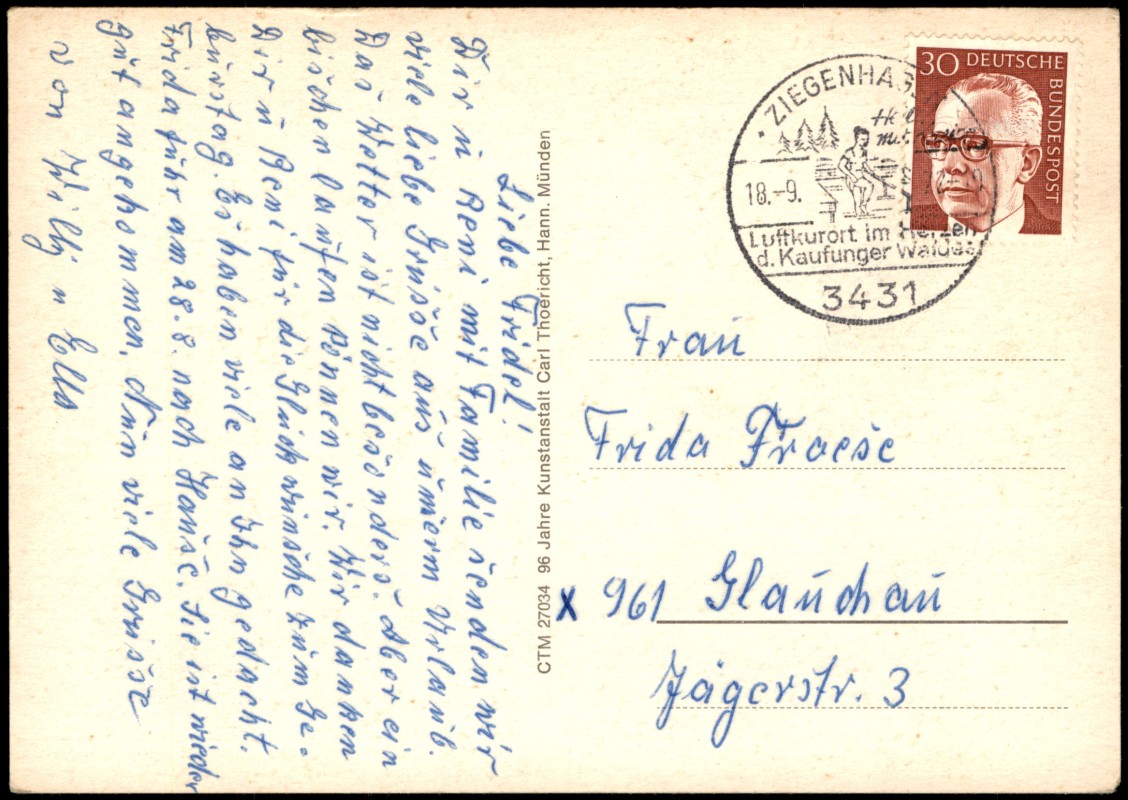 Liebe Fridel!
Dir u Reni mit Familie senden wir
viele liebe Grüsse aus unserm Urlaub.
Das Wetter ist nicht besonders. Aber ein
bischen laufen können wir. Wir danken
Dir u Reni für die Glückwünsche zum Ge-
burtstag. Es haben viele an Ihn gedacht.
Frida fuhr am 28.8. nach Hause. Sie ist wieder
gut angekommen. Nun viele Grüsse
von Willy u Ella
CTM 27034 96 Jahre Kunstanstalt Carl Thoericht, Hann. Münden
30 DEUTSCHE
BUNDESPOST
ZIEGENHAG
18.-9.
Luftkurort im Herzen
d. Kaufunger Waldes
3431
Frau
Frida Fraese
x 961 Glauchau
Jägerstr. 3